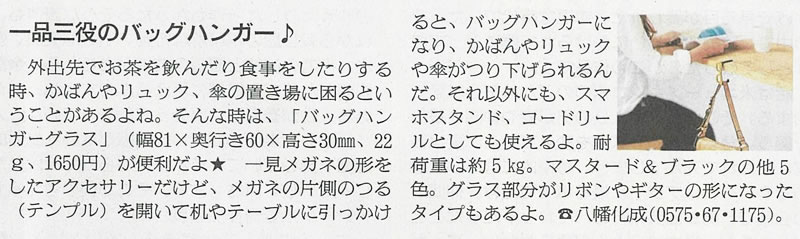 一品三役のバッグハンガー♪
外出先でお茶を飲んだり食事をしたりする
時、かばんやリュック、傘の置き場に困るとい
うことがあるよね。そんな時は、「バッグハン
ガーグラス」（幅81×奥行き60×高さ30㎜、22
ｇ、1650円）が便利だよ★　一見メガネの形を
したアクセサリーだけど、メガネの片側のつる
（テンプル）を開いて机やテーブルに引っかけ
ると、バッグハンガーに
なり、かばんやリュック
や傘がつり下げられるん
だ。それ以外にも、スマ
ホスタンド、コードリー
ルとしても使えるよ。耐
荷重は約５㎏。マスタード＆ブラックの他５
色。グラス部分がリボンやギターの形になった
タイプもあるよ。☎八幡化成（0575・67・1175）。